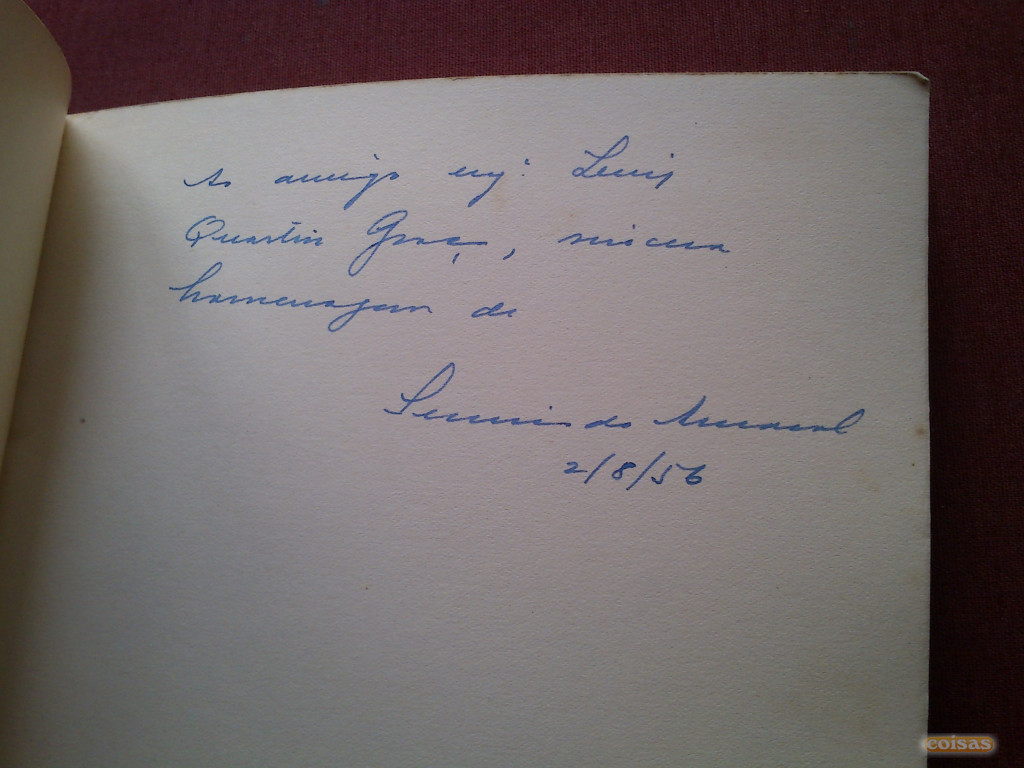 Ao amigo engº. Luis
Quartin Graça, sincera
homenagem de
do Amaral
2/8/56
coisas